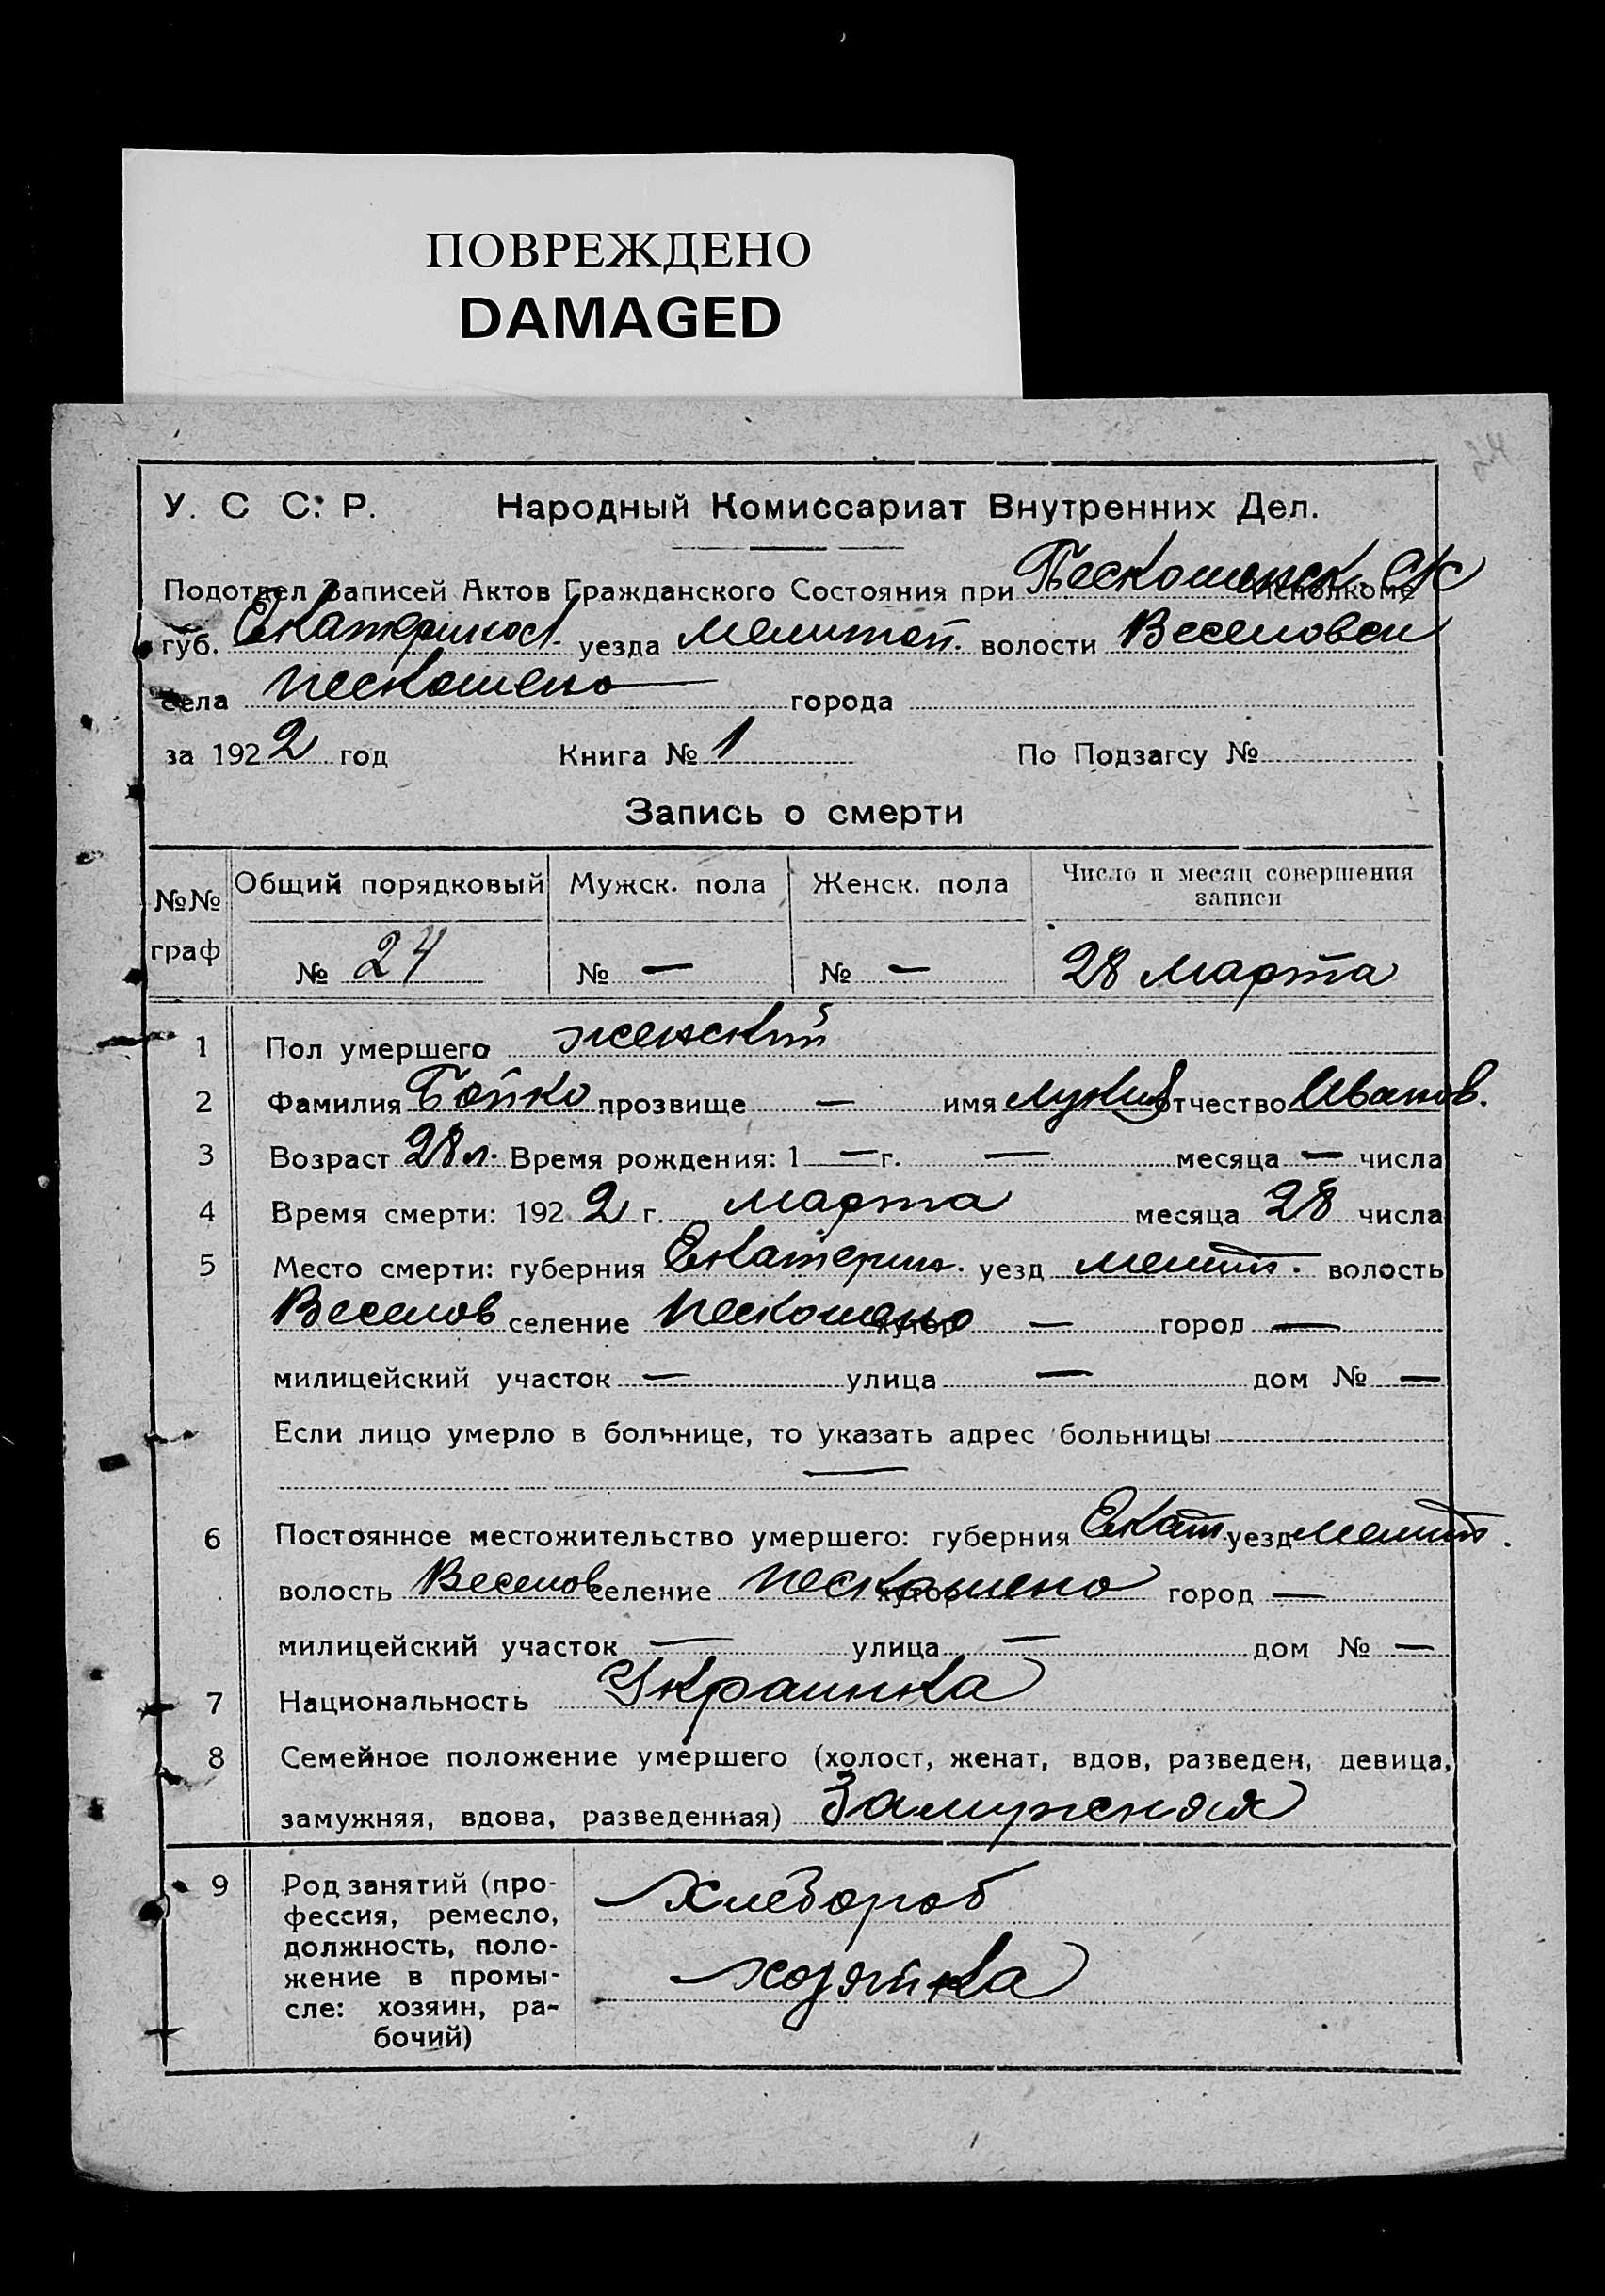 ПОВРЕЖДЕНО
DAMAGED
24
У. С С. Р. Народный Комиссариат Внутренних Дел.
Подотдел Записей Актов Гражданского Состояния при Пескошенск. С/С исполкоме
губ. Екатеринос. уезда Мелитоп. волости Веселовск
села Пескошено города
за 1922 год Книга № 1 По Подзагсу №
Запись о смерти
№№ граф Общий порядковый Мужск. пола Женск. пола Число и месяц совершения записи
№ 24 № — № — 28 марта
1 Пол умершего женский
2 Фамилия Бойко прозвище — имя отчество Иванов.
3 Возраст 28 л. Время рождения: 1 — г. — месяца — числа
4 Время смерти: 1922 г. марта месяца 28 числа
5 Место смерти: губерния Екатерин. уезд Мелит. волость
Веселов селение Пескошено хутор — город —
милицейский участок — улица — дом № —
Если лицо умерло в больнице, то указать адрес больницы
—
6 Постоянное местожительство умершего: губерния Екат. уезд Мелит.
волость Веселов селение Пескошено хутор город —
милицейский участок — улица — дом № —
7 Национальность Украинка
8 Семейное положение умершего (холост, женат, вдов, разведен, девица,
замужняя, вдова, разведенная) Замужняя
9 Род занятий (про-
фессия, ремесло,
должность, поло-
жение в промы-
сле: хозяин, ра-
бочий)
Хлебороб
хозяйка